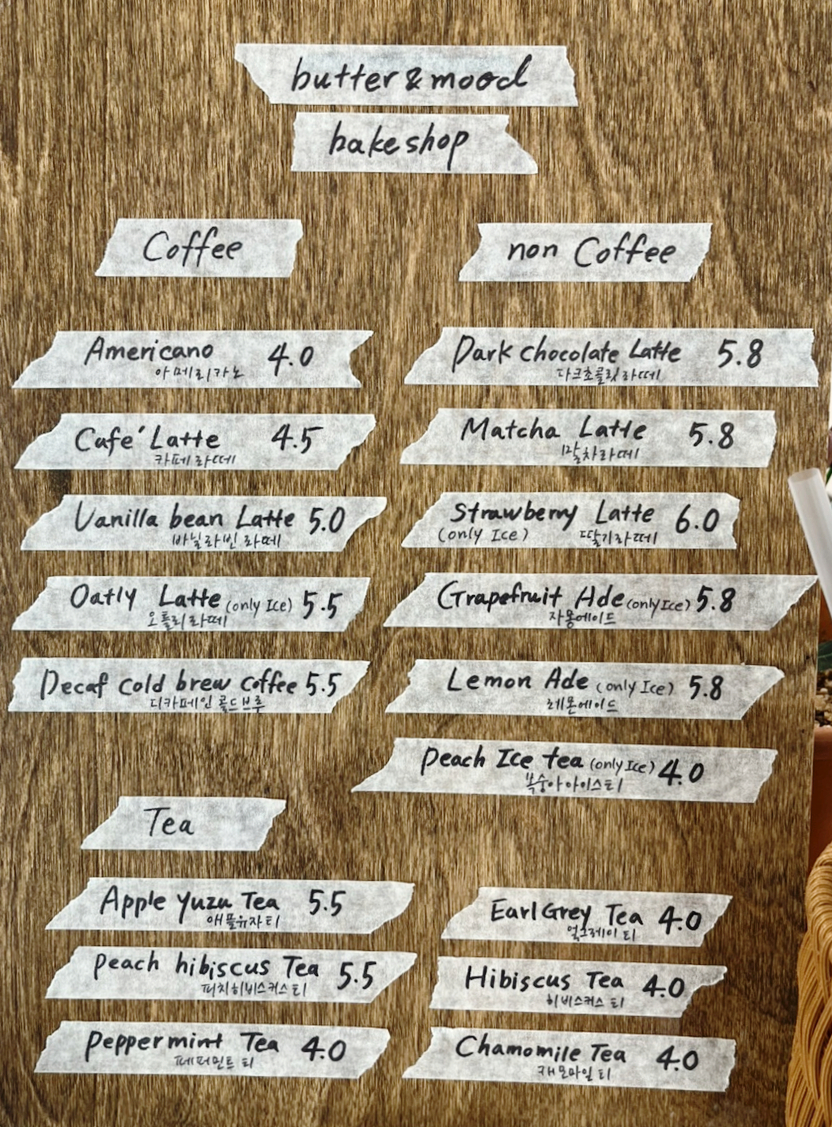 butter & mood
bake shop
Coffee
Americano 4.0
아메리카노
Cafe´ Latte 4.5
카페라떼
Vanilla bean Latte 5.0
바닐라빈라떼
Oatly Latte (only Ice) 5.5
오틀리라떼
Decaf cold brew coffee 5.5
디카페인콜드브루
non Coffee
Dark chocolate Latte 5.8
다크초콜릿라떼
Matcha Latte 5.8
말차라떼
Strawberry Latte 6.0
(only Ice) 딸기라떼
Grapefruit Ade (only Ice) 5.8
자몽에이드
Lemon Ade (only Ice) 5.8
레몬에이드
peach Ice tea (only Ice) 4.0
복숭아아이스티
Tea
Apple Yuzu Tea 5.5
애플유자티
peach hibiscus Tea 5.5
피치히비스커스티
peppermint Tea 4.0
페퍼민트 티
Earl Grey Tea 4.0
얼그레이 티
Hibiscus Tea 4.0
히비스커스 티
Chamomile Tea 4.0
캐모마일 티